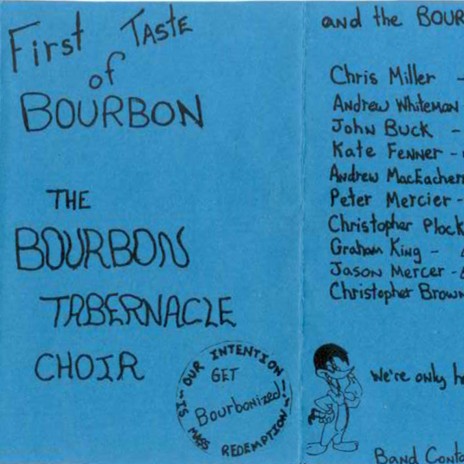 First TASTE
of
BOURBON
THE
BOURBON
TABERNACLE
CHOIR
"OUR INTENTION
GET
Bourbonized!
IS MASS REDEMPTION!"
and the BOUR
Chris Miller -
Andrew Whiteman
John Buck -
Kate Fenner -
Andrew MacEachern
Peter Mercier -
Christopher Plock
Graham King -
Jason Mercer -
Christopher Brown
We're only h
Band Conta